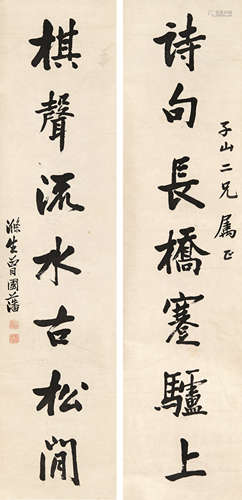 詩句長橋蹇驢上
子山二兄屬正
棋聲流水古松間
滌生曾國藩